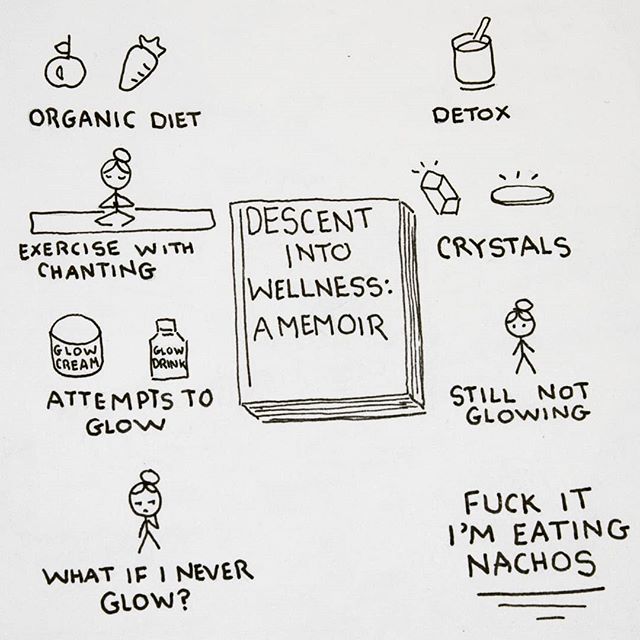 ORGANIC DIET
DETOX
EXERCISE WITH
CHANTING
CRYSTALS
DESCENT
INTO
WELLNESS:
A MEMOIR
GLOW
CREAM
GLOW
DRINK
ATTEMPTS TO
GLOW
STILL NOT
GLOWING
WHAT IF I NEVER
GLOW?
FUCK IT
I'M EATING
NACHOS